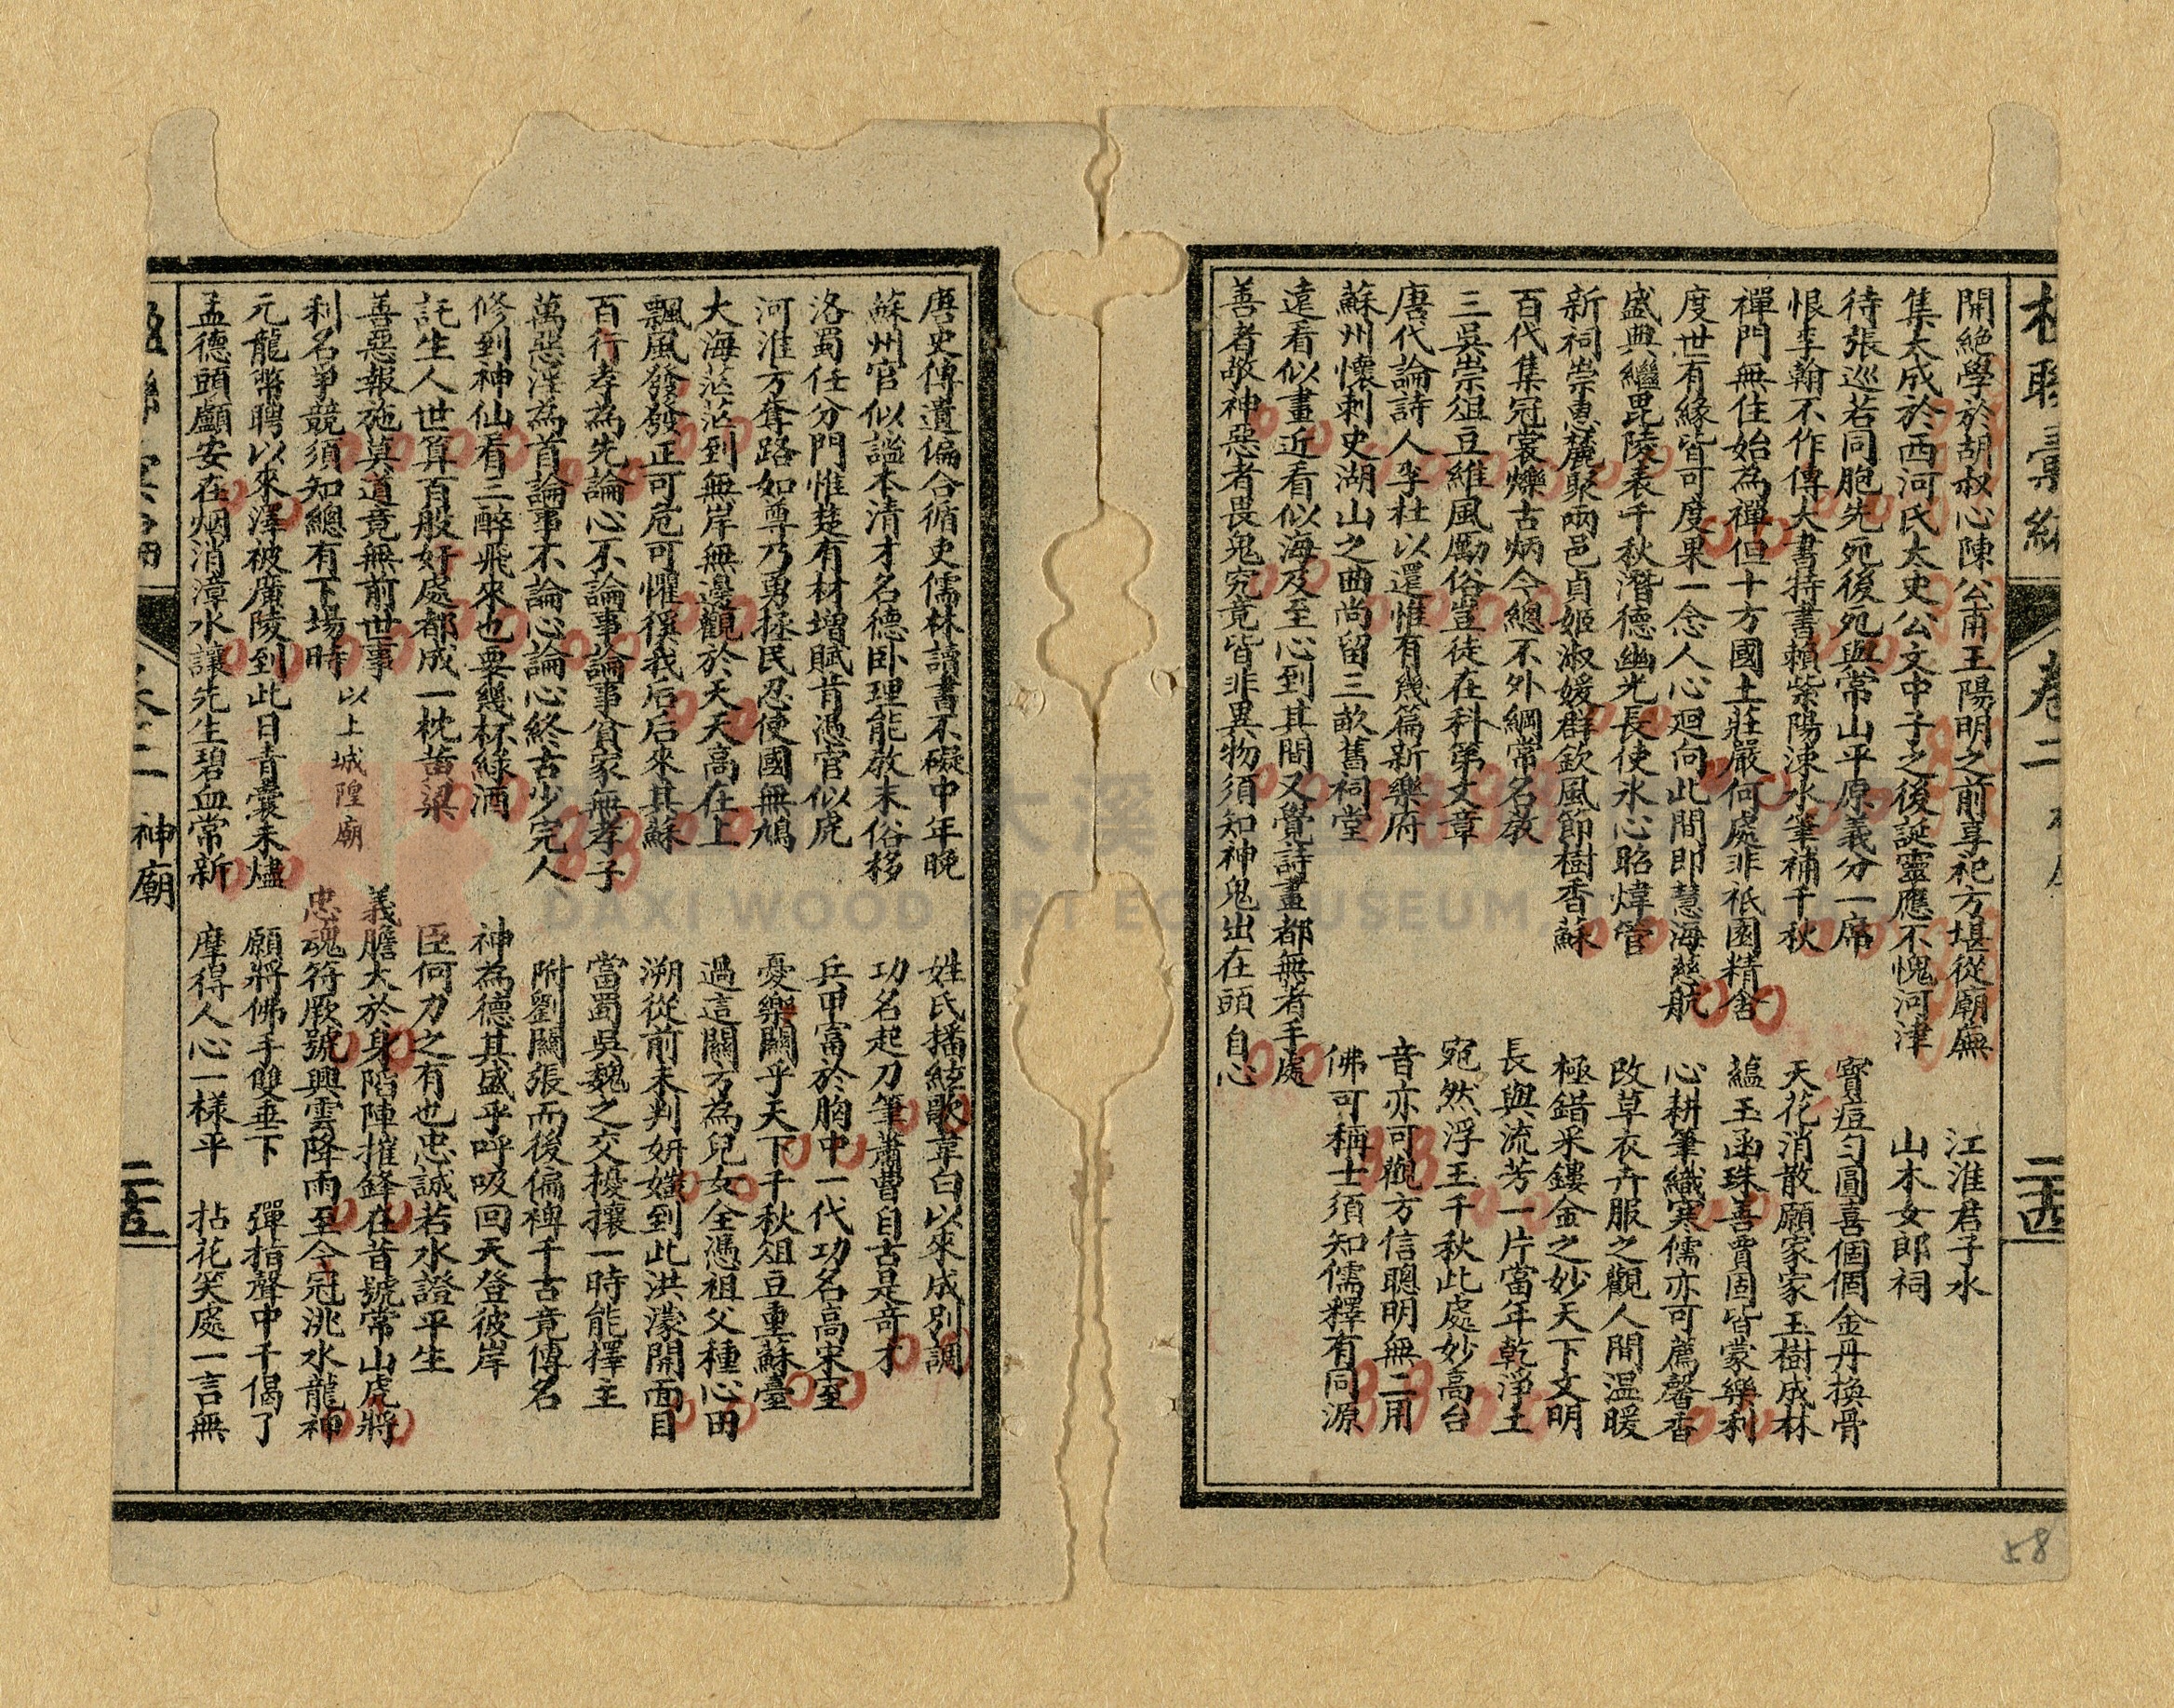 卷二
二十四
開絕學於胡叔心陳公甫王陽明之前享祀方堪從廟廡
集大成於西河氏太史公文中子之後誕靈應不愧河津
待張巡若同胞先宛後宛與常山平原義分一席
恨李翰不作傳大書特書賴紫陽涑水筆補千秋
禪門無住始為禪但十方國土莊嚴何處非祇園精舍
度世有緣皆可度果一念人心廻向此間即慧海慈航
盛典繼毘陵表千秋潛德幽光長使氷心昭煒管
新祠崇惠麓聚兩邑貞姬淑媛群欽風節樹香蘇
百代集冠裳爍古炳今總不外綱常名教
三吳崇俎豆維風勵俗豈徒在科第文章
唐代論詩人李杜以還惟有幾篇新樂府
蘇州懷刺史湖山之曲尚留三畝舊祠堂
遠看似畫近看似海及至心到其間又覺詩畫都無者手處
善者敬神惡者畏鬼究竟皆非異物須知神鬼出在頭自心
江淮君子水
山木女郎祠
寶痘勻圓喜個個金丹換骨
天花消散願家家玉樹成林
蘊玉函珠善賈固皆蒙樂利
心耕筆織寒儒亦可薦馨香
改草衣卉服之觀人間温暖
極錯采鏤金之妙天下文明
長與流芳一片當年乾淨土
宛然浮玉千秋此處妙高台
音亦可觀方信聰明無二用
佛可稱士須知儒釋有同源
58
唐史傳遺偏合循吏儒林讀書不礙中年晚
蘇州官似謚本清才名德卧理能教末俗移
洛蜀任分門惟楚有材增賦肯憑官似虎
河淮方奪路如尊乃勇拯民忍使國無鳩
大海茫茫到無岸無邊觀於天天高在上
飄風發發正可危可懼徯我后后來其蘇
百行孝為先論心不論事論事貧家無孝子
萬惡淫為首論事不論心論心終古少完人
修到神仙看三醉飛來也要幾杯綠酒
託生人世算百般好處都成一枕黃粱
善惡報施莫道竟無前世事
利名爭競須知總有下場時 以上城隍廟
元龍幣聘以來澤被廣陵到此日青囊未燼
孟德頭顱安在烟消漳水讓先生碧血常新
姓氏播絃歌韋白以來成別調
功名起刀筆蕭曹自古是奇才
兵甲富於胸中一代功名高宋室
憂樂關乎天下千秋俎豆重蘇臺
過這關方為兒女全憑祖父種心田
溯從前未判妍媸到此洪濛開面目
當蜀吳魏之交擾攘一時能擇主
附劉關張而後偏裨千古竟傳名
神為德其盛乎呼吸回天登彼岸
臣何力之有也忠誠若水證平生
義膽大於身陷陣摧鋒在昔號常山虎將
忠魂符厥號興雲降雨至今冠洮水龍神
願將佛手雙垂下
摩得人心一樣平
彈指聲中千偈了
拈花笑處一言無
神廟
二十五